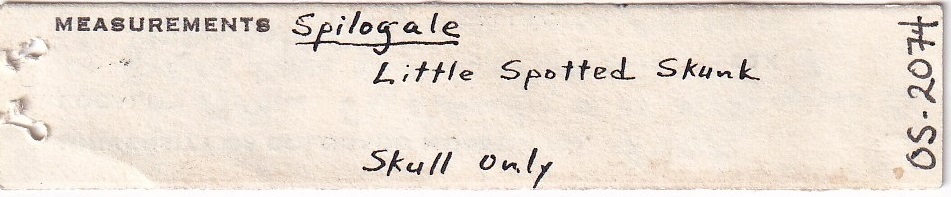 MEASUREMENTS Spilogale
Little Spotted Skunk
Skull Only
OS-2074